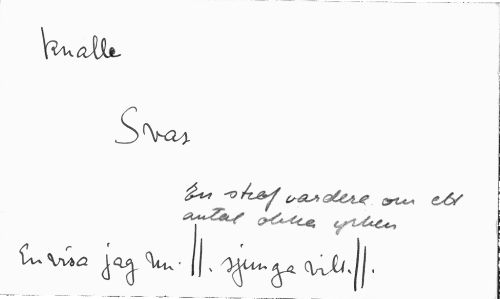 Knalle
Svar
En strof vardera om ett
antal olika yrken
En visa jag nu. ||. sjunga vill. ||.